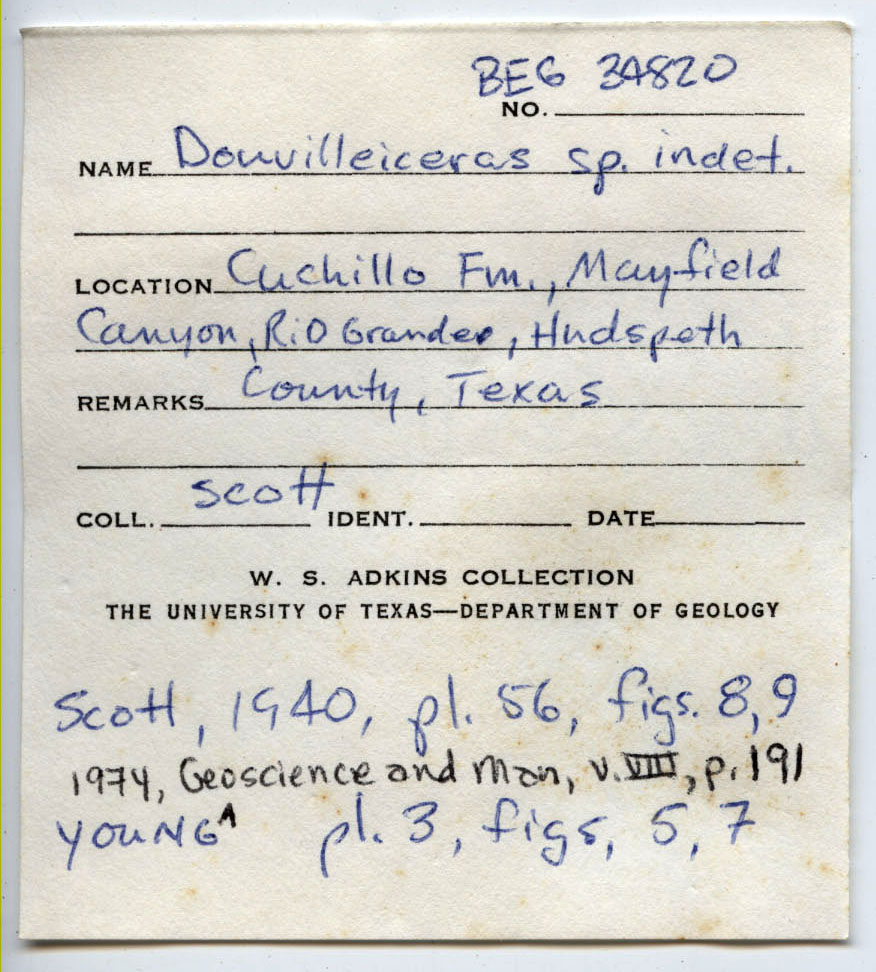 BEG 34820
NO.
NAME Douvilleiceras sp. indet.
LOCATION Cuchillo Fm., Mayfield
Canyon, Rio Grande, Hudspeth
REMARKS County, Texas
COLL. Scott IDENT. DATE
W. S. ADKINS COLLECTION
THE UNIVERSITY OF TEXAS—DEPARTMENT OF GEOLOGY
Scott, 1940, pl. 56, figs. 8, 9
1974, Geoscience and Man, v. VIII, p. 191
YOUNG^ pl. 3, figs, 5, 7